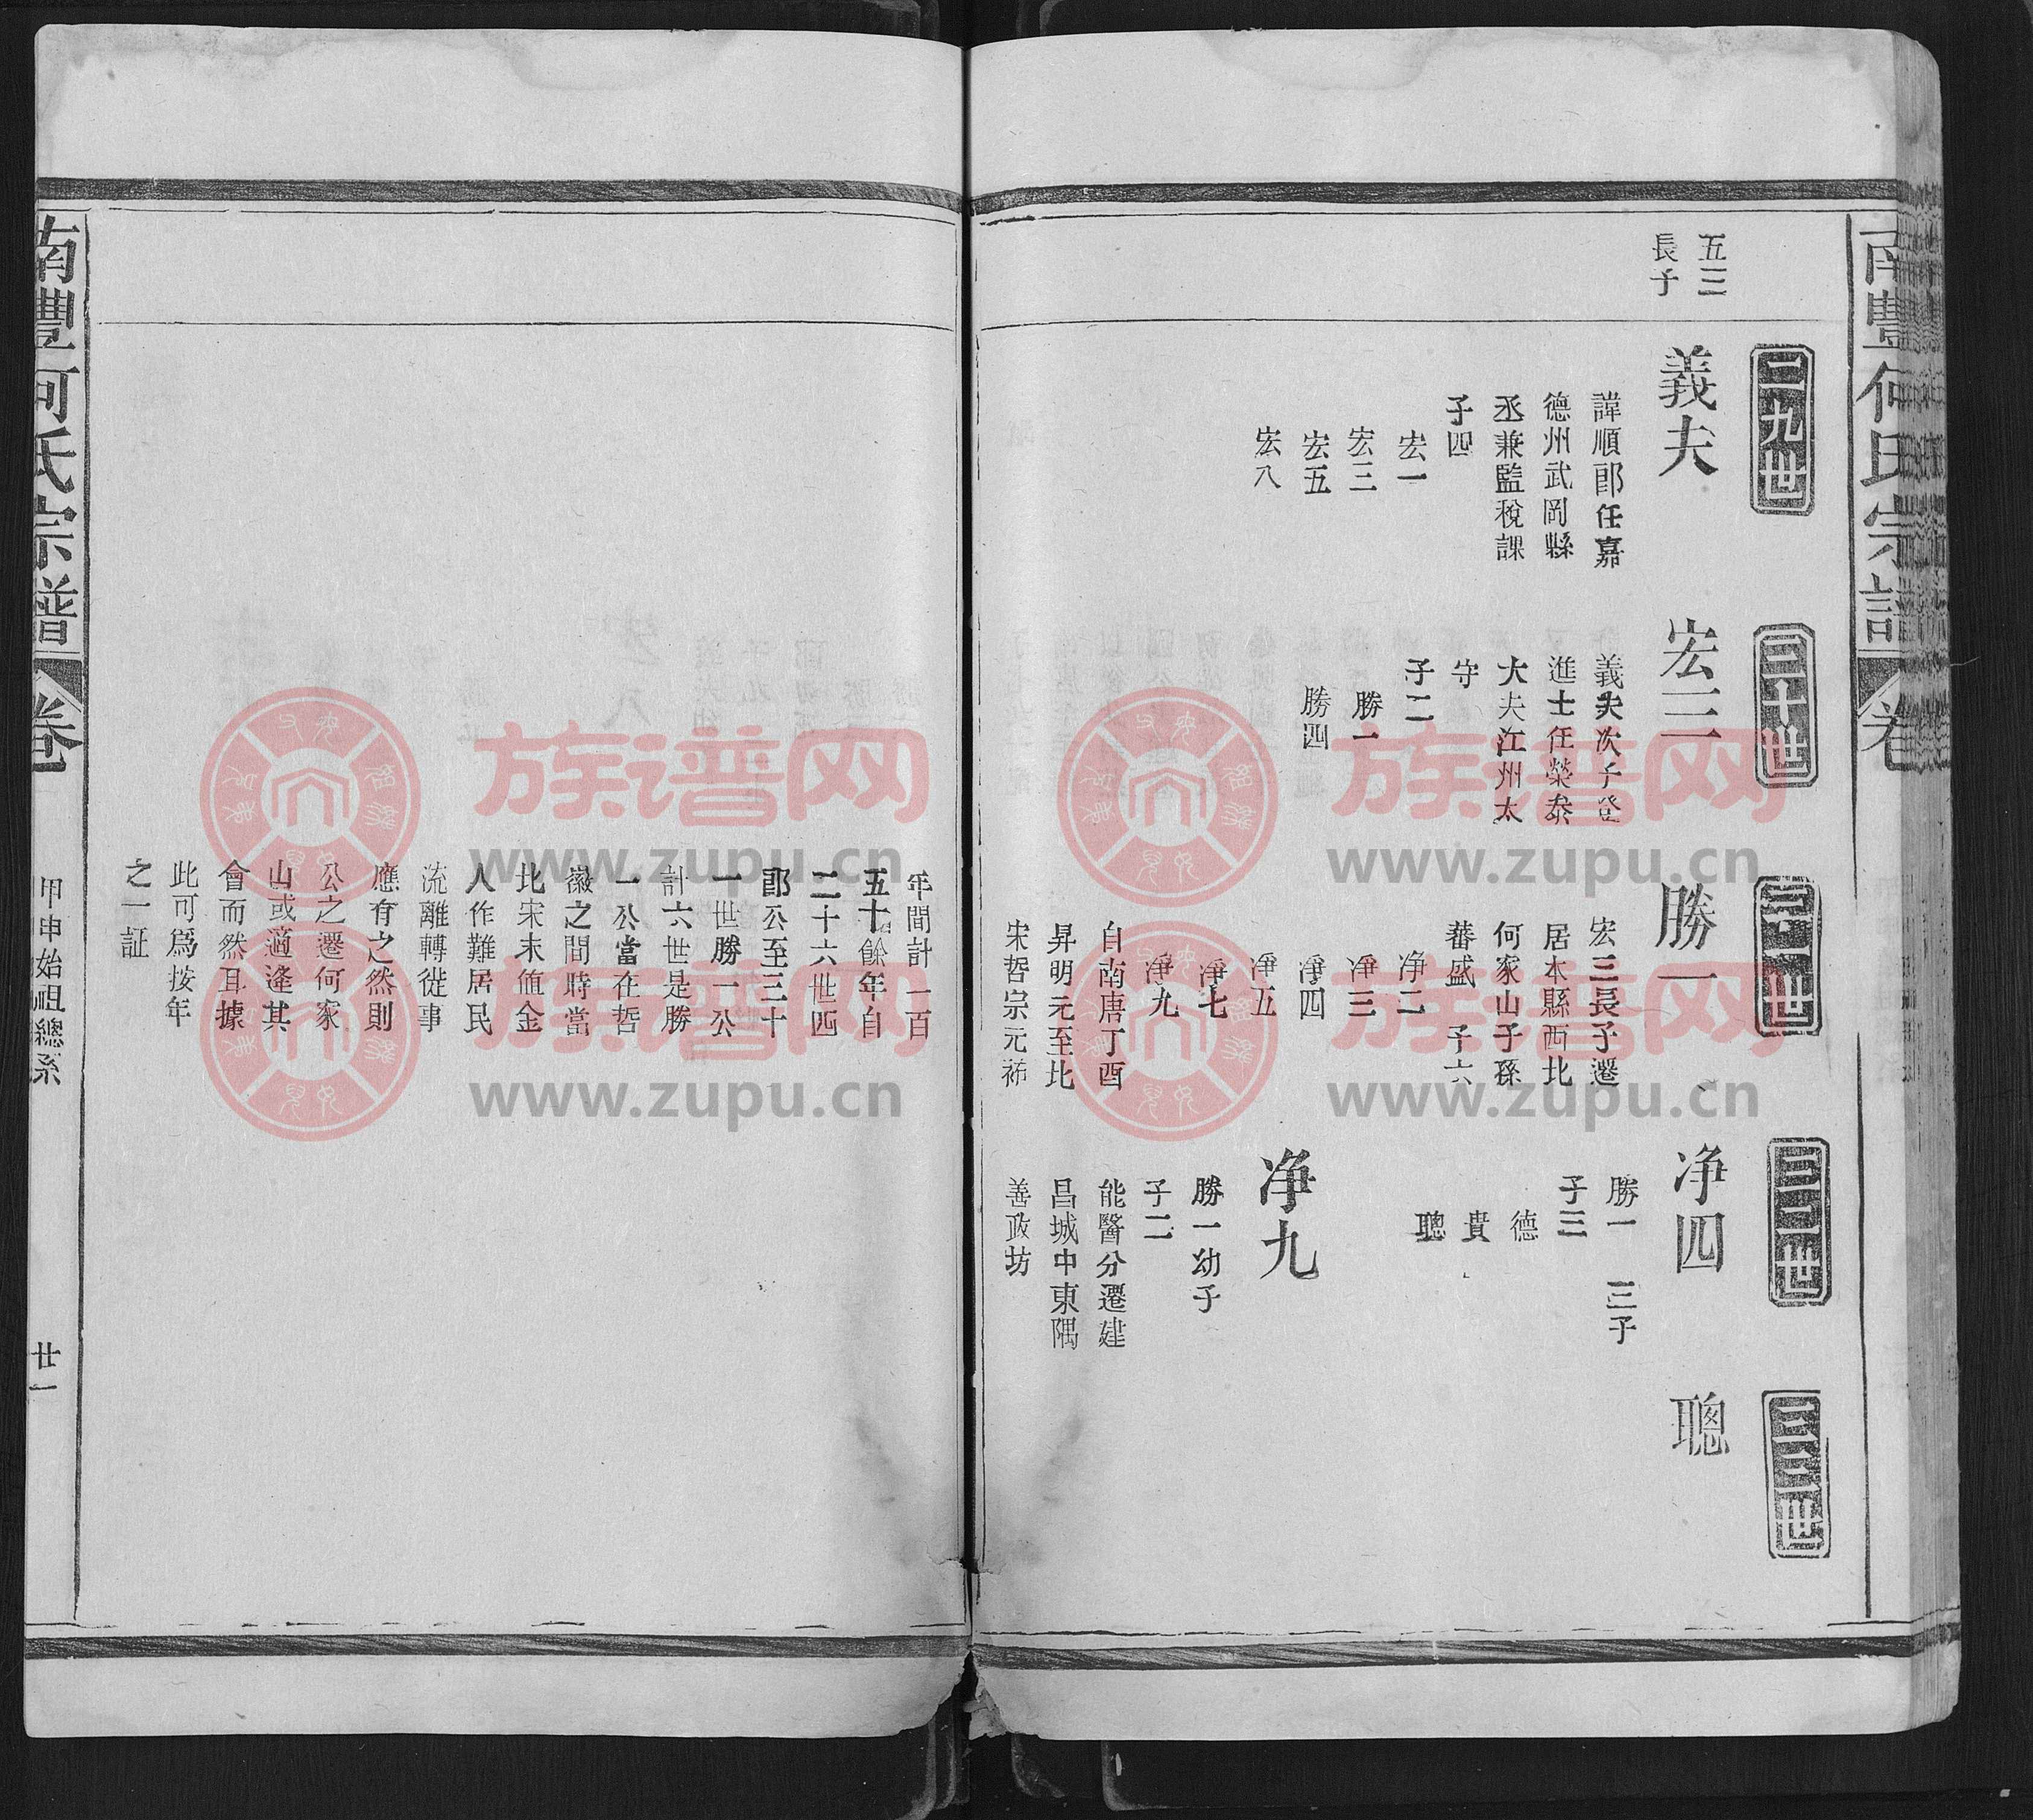 南豐何氏宗譜
卷
五三
長子
二九世
義夫
諱順郎任嘉
德州武岡縣
丞兼監稅課
子四
宏一
宏三
宏五
宏八
三十世
宏三
義夫次子登
進士任榮泰
大夫江州太
守
子二
勝一
勝四
三一世
勝一
宏三長子遷
居本縣西北
何家山子孫
蕃盛 子六
净二
净三
淨四
淨五
淨七
净九
自南唐丁酉
昇明元至北
宋哲宗元祐
三二世
净四
勝一 三子
子三
德
貴
聰
净九
勝一幼子
子二
能醫分遷建
昌城中東隅
善政坊
三三世
聰
年間計一百
五十餘年自
二十六世四
郎公至三十
一世勝一公
計六世是勝
一公當在哲
徽之間時當
北宋末值金
人作難居民
流離轉徙事
應有之然則
公之遷何家
山或適逢其
會而然耳據
此可爲按年
之一証
南豐何氏宗譜
卷一
甲申始祖總系
廿一
族谱网
www.zupu.cn
族谱网
www.zupu.cn
族谱网
www.zupu.cn
族谱网
www.zupu.cn